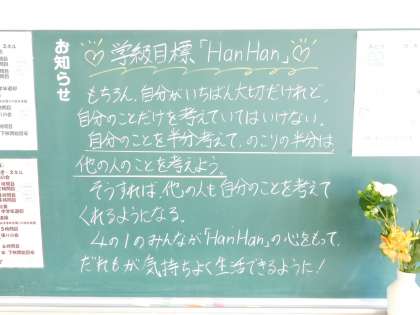 お知らせ
学級目標「HanHan」
もちろん、自分がいちばん大切だけれど、
自分のことだけを考えていてはいけない。
自分のことを半分考えて、のこりの半分は
他の人のことを考えよう。
そうすれば、他の人も自分のことを考えて
くれるようになる。
4の1のみんなが「HanHan」の心をもって、
だれもが気持ちよく生活できるように!